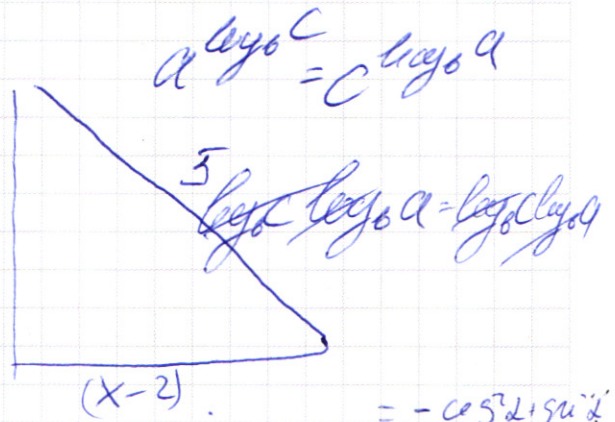 a^{log_b c} = c^{log_b a}
5
log_b c log_b a = log_b c log_b a
(x-2).
= - cos²α + sin²α